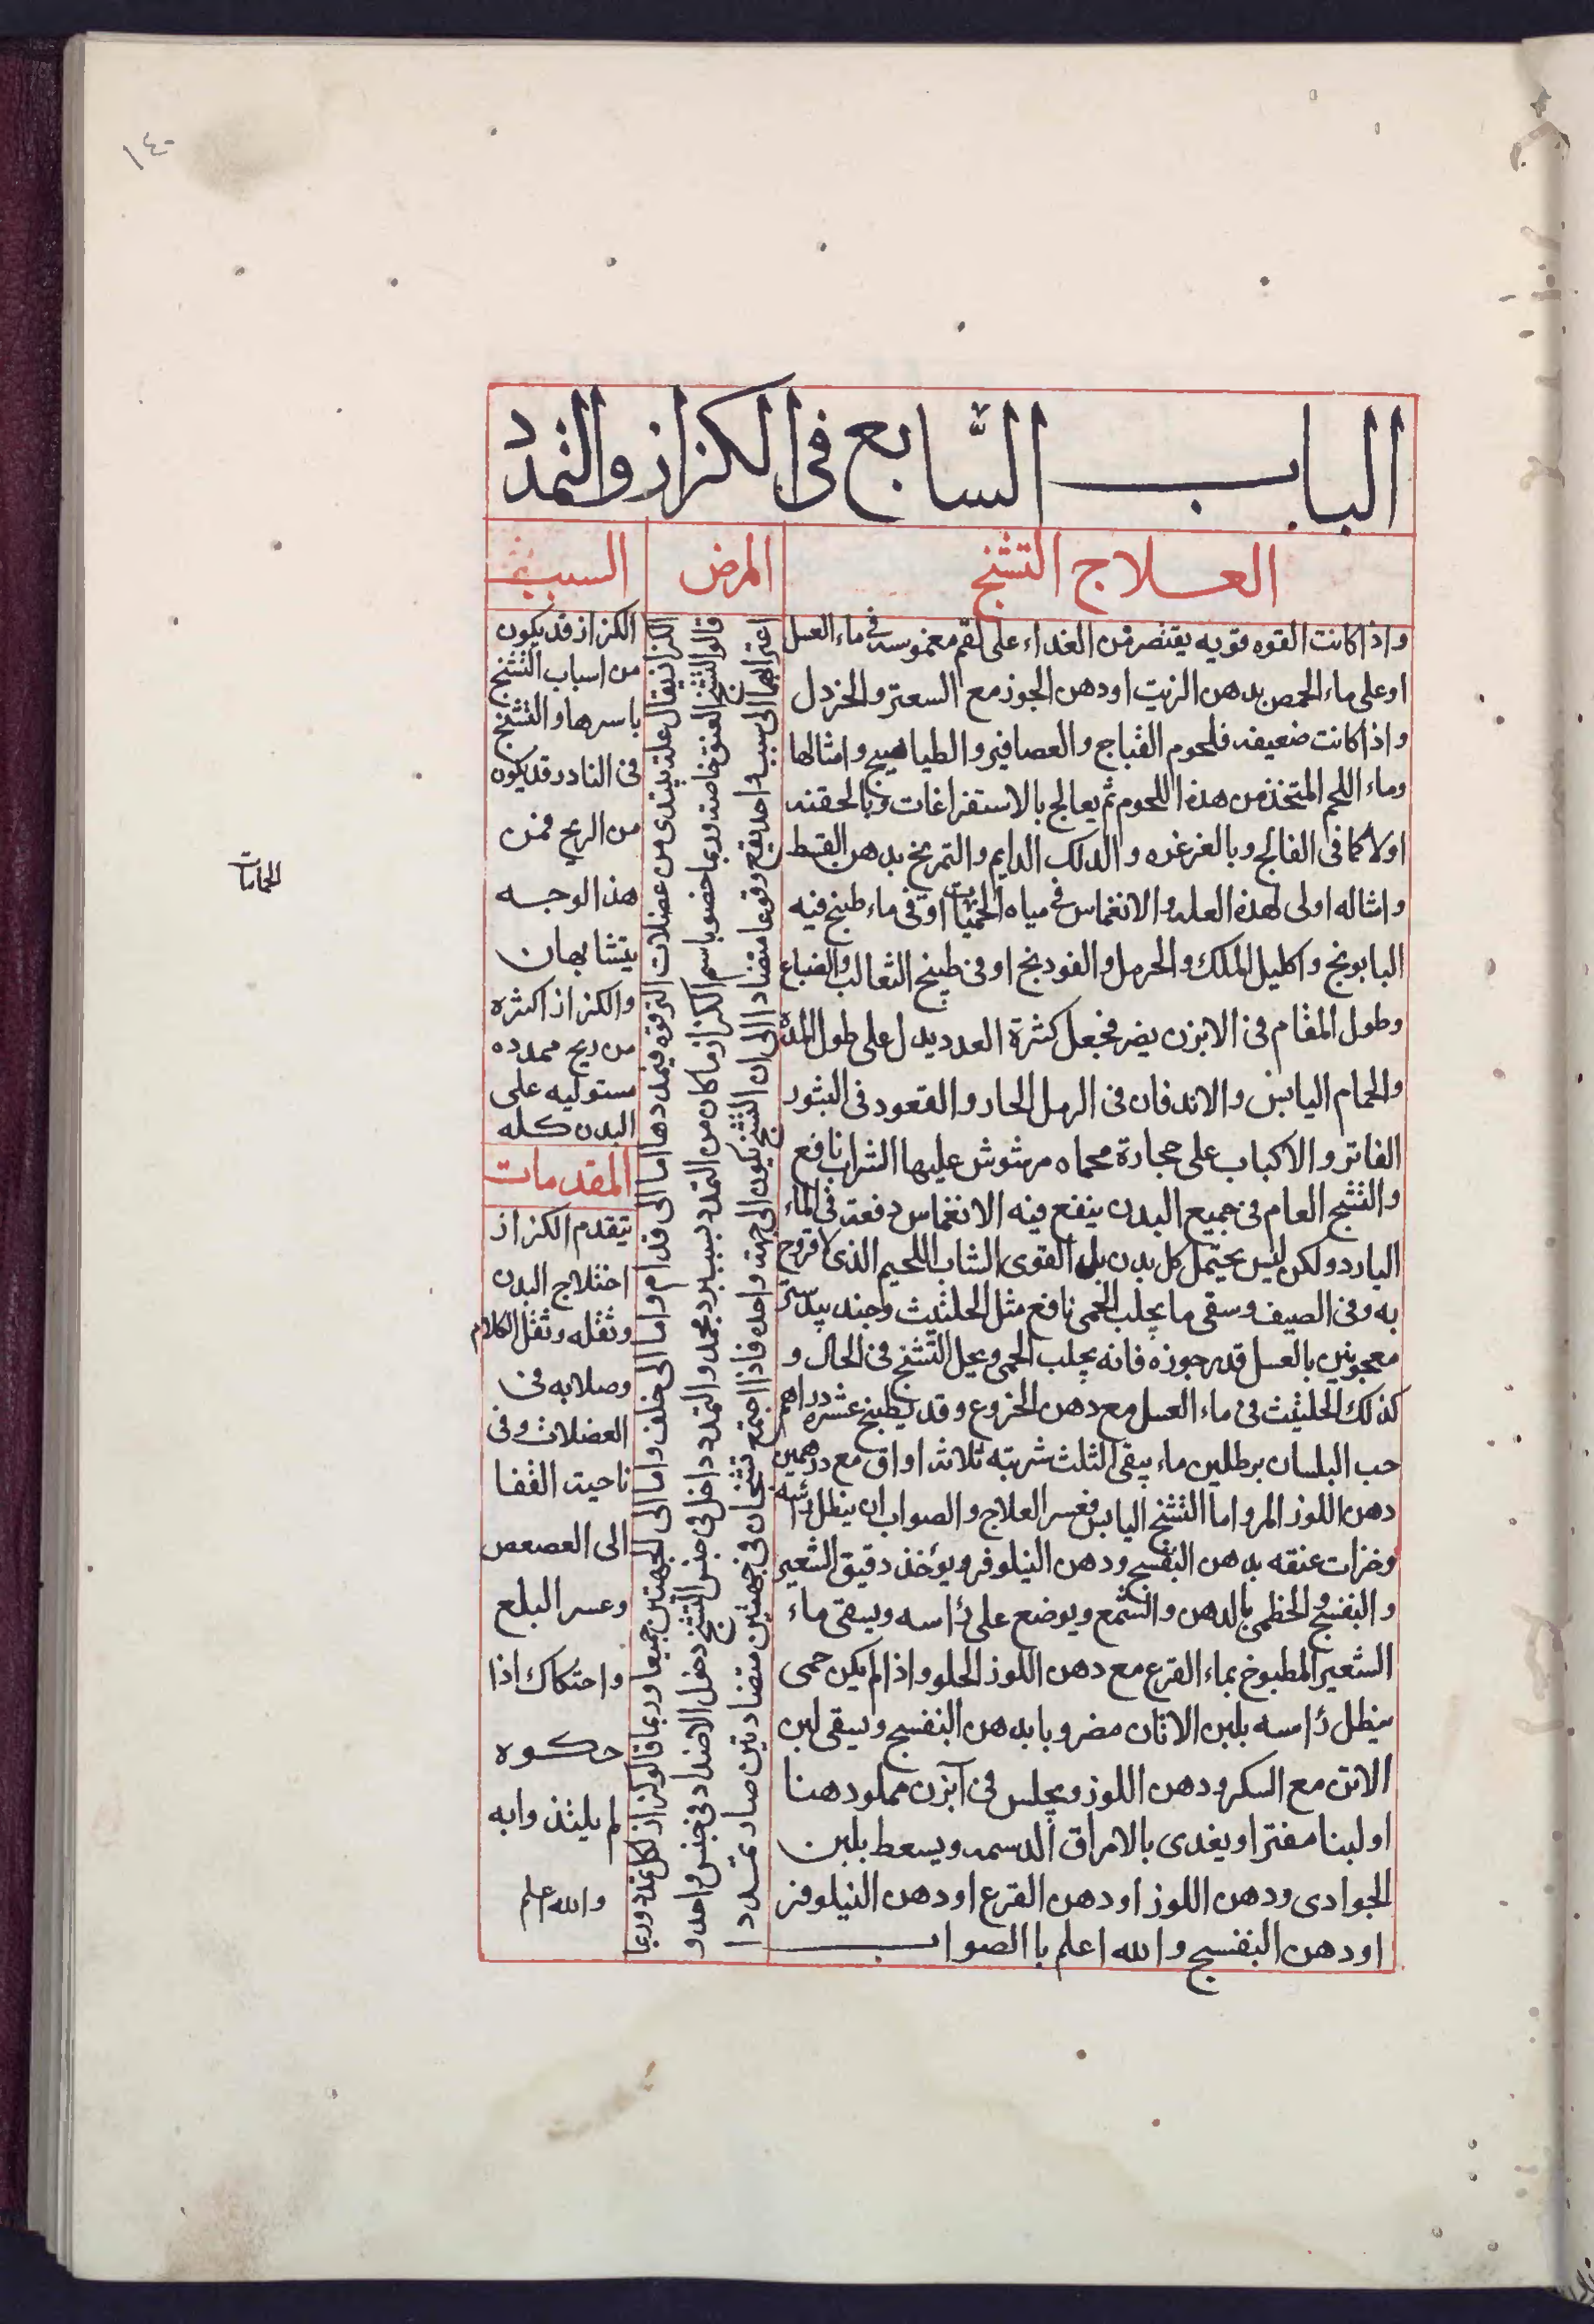 ١٤٠
الباب السابع فى الكزاز والتمدد
العلاج التشنج
واذا كانت القوه قويه يقتصر من الغداء على لقم مغموسه فى ماء العسل
او على ماء الحمص بدهن الزيت او دهن الجوز مع السعتر والخردل
واذا كانت ضعيفه فلحوم القباج والعصافير والطياهيج وامثالها
وماء اللحم المتخذ من هذه اللحوم ثم يعالج بالاستفراغات وبالحقنه
اولا كما فى الفالج وبالغرغره والدلك الدايم والتمريخ بدهن القسط
وامثاله اولى لهذه العله والانغماس فى مياه الحميات او فى ماء طبخ فيه
البابونج واكليل الملك والحرمل والفودنج او فى طبيخ الثعالب والضباع
وطول المقام فى الابزن يضر فجعل كثرة العدد يدل على طول المده
والحمام اليابس والاندفان فى الرمل الحار والقعود فى التنور
الفاتر والاكباب على حجارة محماه مرشوش عليها الشراب نافع
والتشنج العام فى جميع البدن ينفع فيه الانغماس دفعة فى الماء
البارد ولكن ليس يحتمل كل بدن بل القوى الشاب اللحيم الذى لا قروح
به وفى الصيف وسقى ما يجلب الحمى نافع مثل الحلتيت وجند بيدستر
معجونين بالعسل قدر جوزه فانه يجلب الحمى ويحل التشنج فى الحال و
كذلك الحلتيت فى ماء العسل مع دهن الخروع وقد يطبخ عشره دراهم
حب البلسان برطلين ماء يبقى الثلث شربته ثلاثه اواق مع درهمين
دهن اللوز المر واما التشنج اليابس فعسر العلاج والصواب ان ينطل رئسه
وخرزات عنقه بدهن البنفسج ودهن النيلوفر ويؤخذ دقيق الشعير
والبنفسج والخطمى بالدهن والشمع ويوضع على رأسه ويسقى ماء
الشعير المطبوخ بماء القرع مع دهن اللوز الحلو واذا لم يكن حمى
ينطل رأسه بلبن الاتان مضروبا بدهن البنفسج ويسقى لبن
الاتن مع السكر ودهن اللوز ويجلس فى آبزن مملو دهنا
او لبنا مفترا ويغدى بالامراق الدسمه ويسعط بلبن
الجوارى ودهن اللوز او دهن القرع او دهن النيلوفر
او دهن البنفسج والله اعلم باالصواب
المرض
الكزاز يقال علة تبتدى من عضلات الترقوه فيمددها اما الى قدام واما الى خلف واما الى الجهتين جميعا وربما قالو كزاز لكل تمدد وربما
قالو التشنج العنق خاصة وربما خصو باسم الكزاز ما كان من التمدد بسبب برد مجمد والتمدد داخل فى جنس التشنج دخول الاضداد فى جنس واحد و
اعترابهما الى سبب واحد يقع وقوعا متضادا الى ان التشنج يكون الى جهة واحده فاذا اجتمع تشنجان فى جهتين متضادتين صار تمددا
السبب
الكزاز قد يكون
من اسباب التشنج
باسرها والتشنج
فى النادر قد يكون
من الريح فمن
هذا الوجه
يتشابهان
والكزاز اكثره
من ريح ممدده
مستوليه على
البدن كله
المقدمات
يتقدم الكزاز
اختلاج البدن
وثقله وثقل الكلام
وصلابه فى
العضلات وفى
ناحية القفا
الى العصعص
وعسر البلع
واحتكاك اذا
حكوه
لم يلتذوا به
والله اعلم
الحمامات